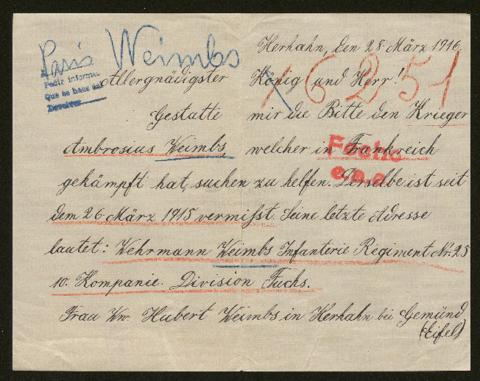 Herhahn, den 28 März 1916.
Paris Weimbs
Pedir informe
Que se haga así
Devolver
Allergnädigster König und Herr!
16251
Gestatte mir die Bitte den Krieger
Ambrosius Weimbs welcher in Frankreich
gekämpft hat, suchen zu helfen. Derselbe ist seit
dem 26 März 1915 vermißt. Seine letzte Adresse
lautet: Wehrmann Weimbs Infanterie Regiment Nr. 25
10. Kompanie. Division Fuchs.
Frau Ww Hubert Weimbs in Herhahn bei Gemünd
(Eifel)